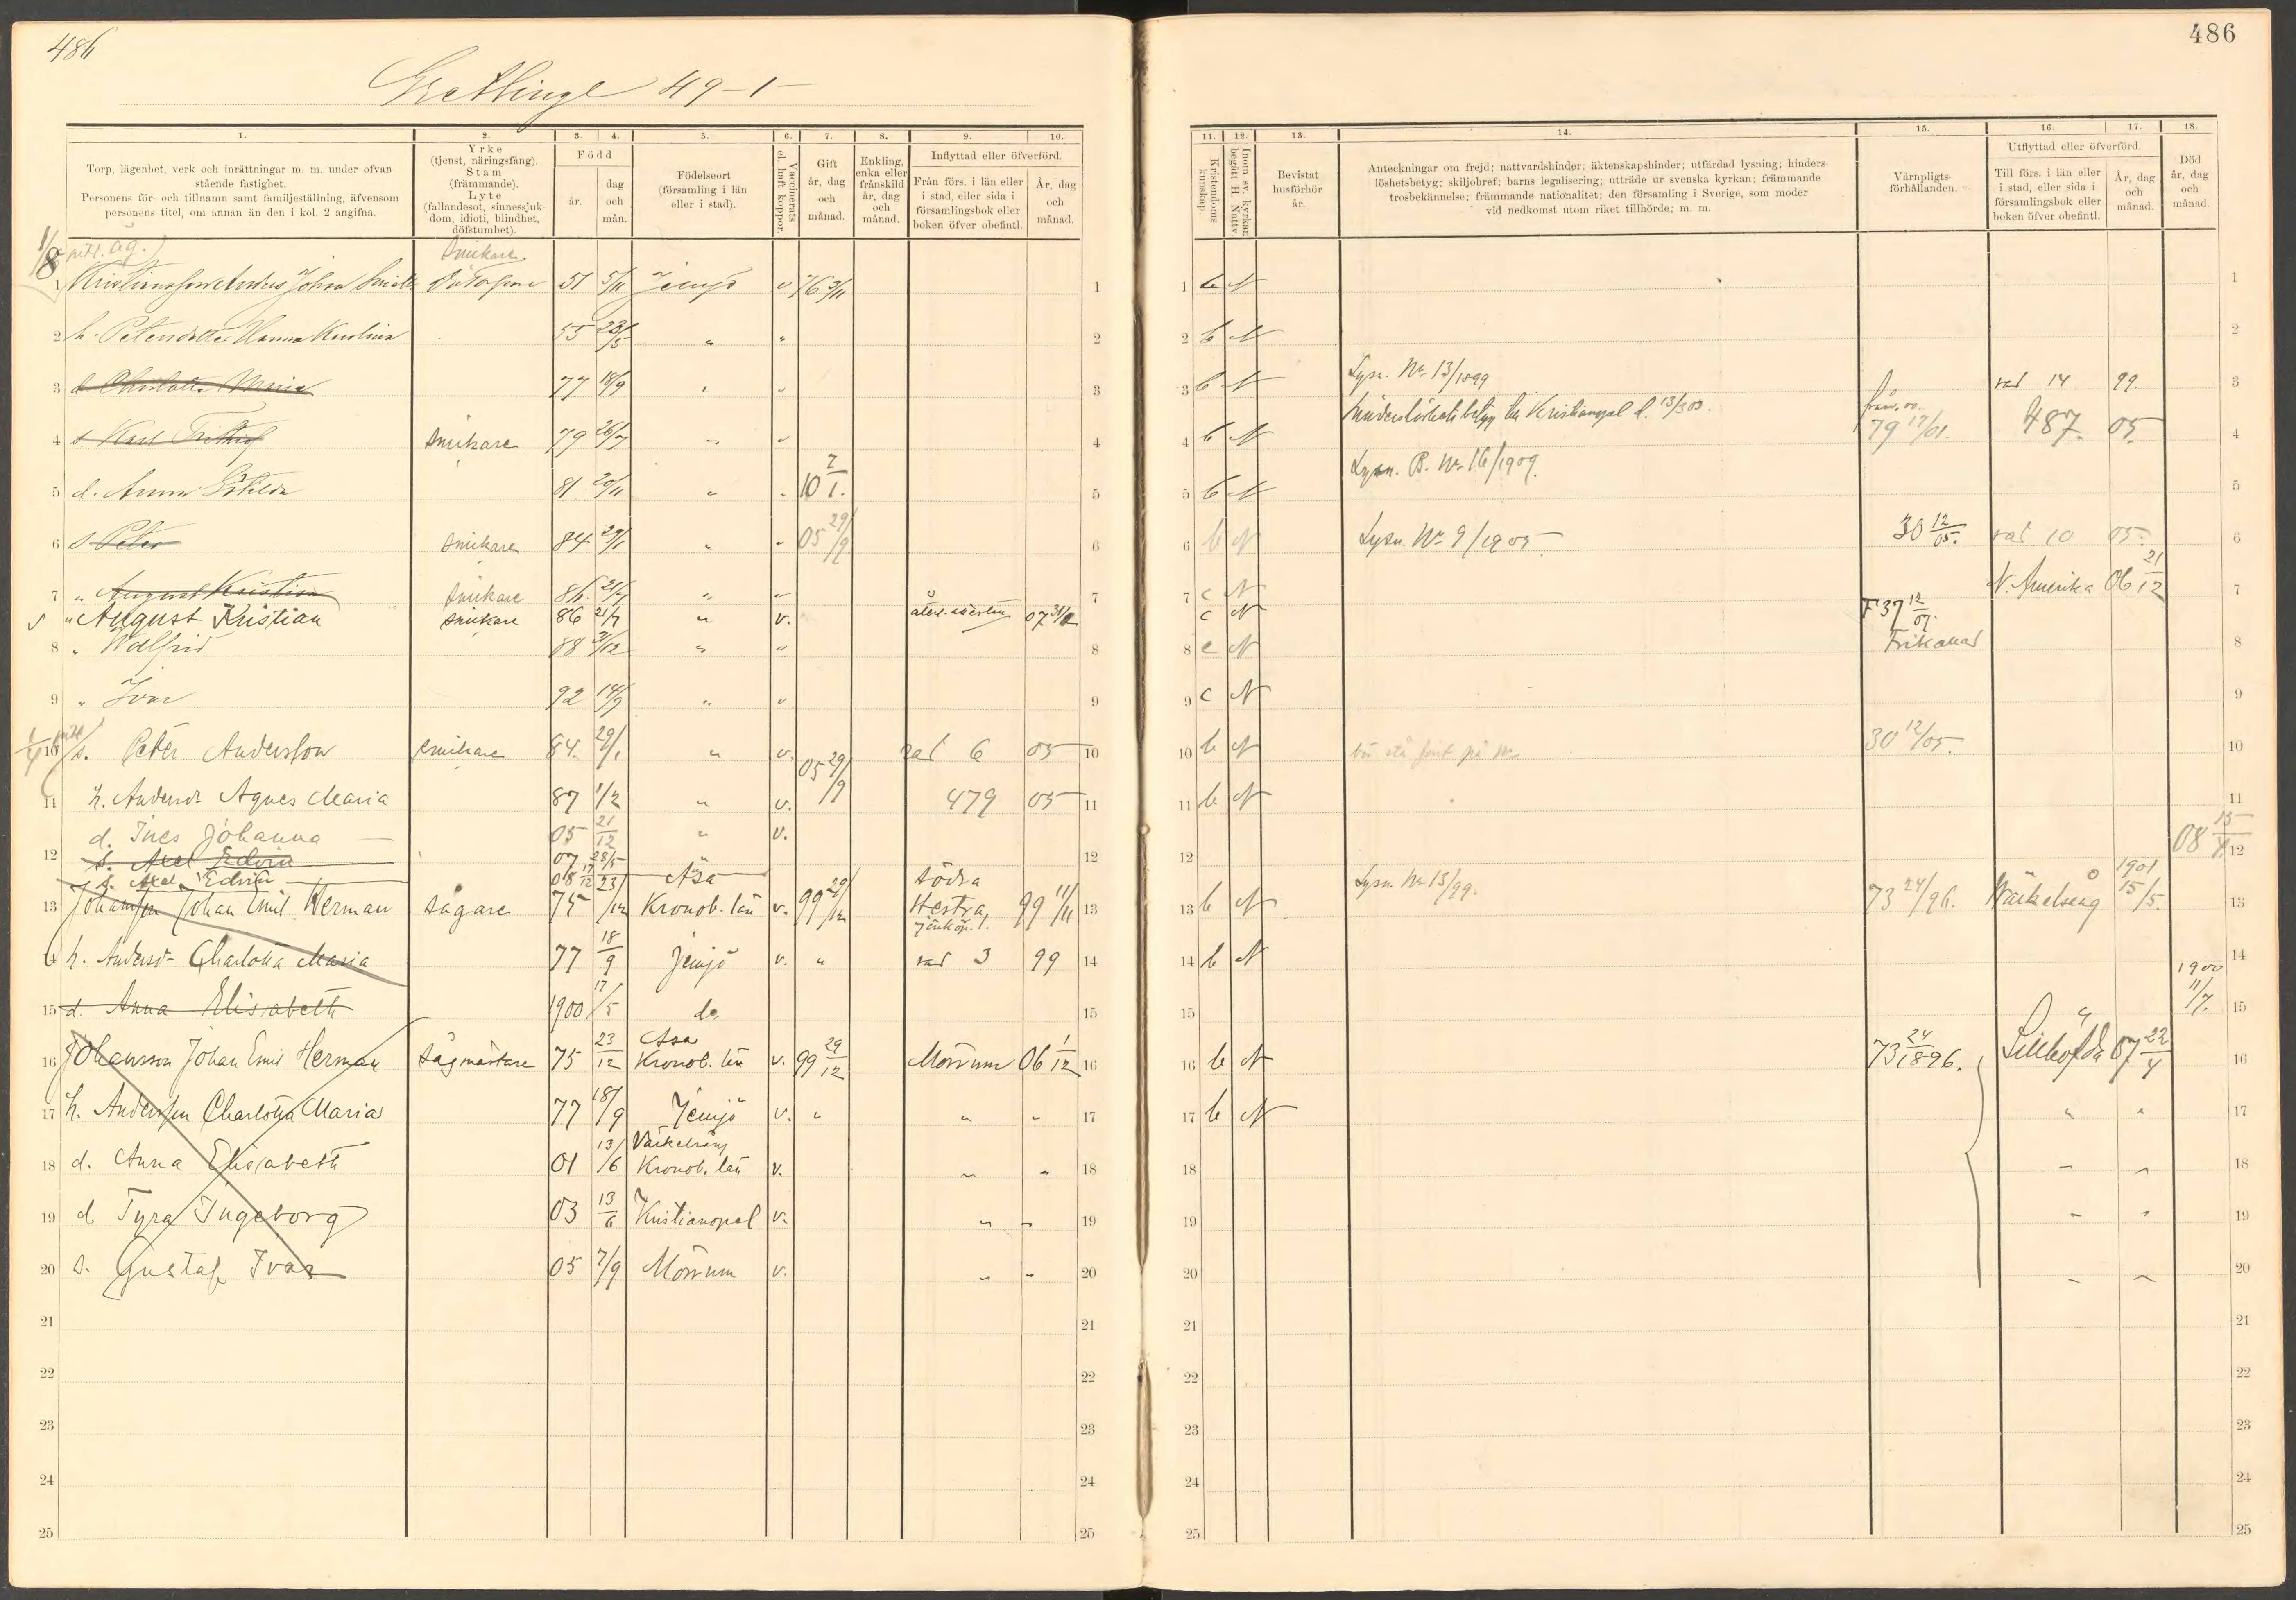 486
486
Grettlinge 49-1-
1. 2. 3. 4. 5. 6. 7. 8. 9. 10.
Torp, lägenhet, verk och inrättningar m. m. under ofvanstående fastighet.
Personens för- och tillnamn samt familjeställning, äfvensom personens titel, om annan än den i kol. 2 angifna.
Yrke (tjenst, näringsfång).
Stam (främmande).
Lyte (fallandesot, sinnessjukdom, idioti, blindhet, döfstumhet).
Född
år.
dag och mån.
Födelseort (församling i län eller i stad).
Vaccinerats el. haft koppor.
Gift år, dag och månad.
Enkling, enka eller frånskild år, dag och månad.
Inflyttad eller öfverförd.
Från förs. i län eller i stad, eller sida i församlingsbok eller boken öfver obefintl.
År, dag och månad.
11. 12. 13. 14. 15. 16. 17. 18.
Kristendomskunskap.
Inom sv. kyrkan begått H. Nattv.
Bevistat husförhör år.
Anteckningar om frejd; nattvardshinder; äktenskapshinder; utfärdad lysning; hinderslöshetsbetyg; skiljobref; barns legalisering; utträde ur svenska kyrkan; främmande trosbekännelse; främmande nationalitet; den församling i Sverige, som moder vid nedkomst utom riket tillhörde; m. m.
Värnpligtsförhållanden.
Utflyttad eller öfverförd.
Till förs. i län eller i stad, eller sida i församlingsbok eller boken öfver obefintl.
År, dag och månad.
Död år, dag och månad.
1/8 äg. Snickare
1 Johan 51 5/11 Jemjö v 76 3/11 1 b N 1
2 h. Petersdotter Hanna Karolina 55 " " 2 b N 2
3 d. Charlotta Maria 77 18/9 " " 3 b N Lysn. No 13/1899 rad 14 99 3
4 s. Karl Snickare 79 26/7 " " 4 b N Kristianopel d. 13/3 03. 79 17/01. 487. 05. 4
5 d. Anna 81 20/11 " " 10 2/1. 5 b N Lysn. B. No 16/1909. 5
6 s. Peter Snickare 84 29/1 " " 05 29/9 6 b N Lysn. No 9/1905 30 12/05. rad 10 05 6
7 " August Kristian Snickare 86 21/7 " " 7 c N N. Amerika 06 21/12 7
s " August Kristian Snickare 86 21/7 " v. 07 c N F 37 12/07.
8 " Walfrid 88 " " 8 c N Frikallad 8
9 " Ivar 92 14/9 " " 9 c N 9
10 s. Peter Andersson snickare 84. 29/1 " v. 05 29/9 rad 6 05 10 b N 30 12/05. 10
11 h. Andersdr Agnes Maria 87 1/2 " v. 479 05 11 b N 11
d. Ines Johanna 05 21/12 " v.
12 s. Axel Edvin 07 28/5 12 08 15 12
s. Axel Edvin 08 17/12
13 Johansson Johan Emil Herman sågare 75 23/12 Åsa Kronob. län v. 99 29/12 Södra Hestra, Jönköp. l. 99 11/11 13 b N Lysn. No 13/99. 73 24/96. Wäckelsång 1901 15/5. 13
14 h. Andersdr Charlotta Maria 77 18/9 Jemjö v. " rad 3 99 14 b N 14
15 d. Anna Elisabeth 1900 17/5 do 15 " 1900 11/7. 15
16 Johansson Johan Emil Herman Sågmästare 75 23/12 Asa Kronob. län v. 99 29/12 Mörrum 06 1/12 16 b N 73 24/1896. Sillhöfda 07 22/4 16
17 h. Andersson Charlotta Maria 77 18/9 Jemjö v. " " " 17 b N " " 17
18 d. Anna Elisabeth 01 13/6 Väckelsång Kronob. län v. " " 18 " " 18
19 d. Tyra Ingeborg 03 13/6 Kristianopel v. " " 19 " " 19
20 s. Gustaf Ivar 05 7/9 Mörrum v. " " 20 " " 20
21 21 21 21
22 22 22 22
23 23 23 23
24 24 24 24
25 25 25 25